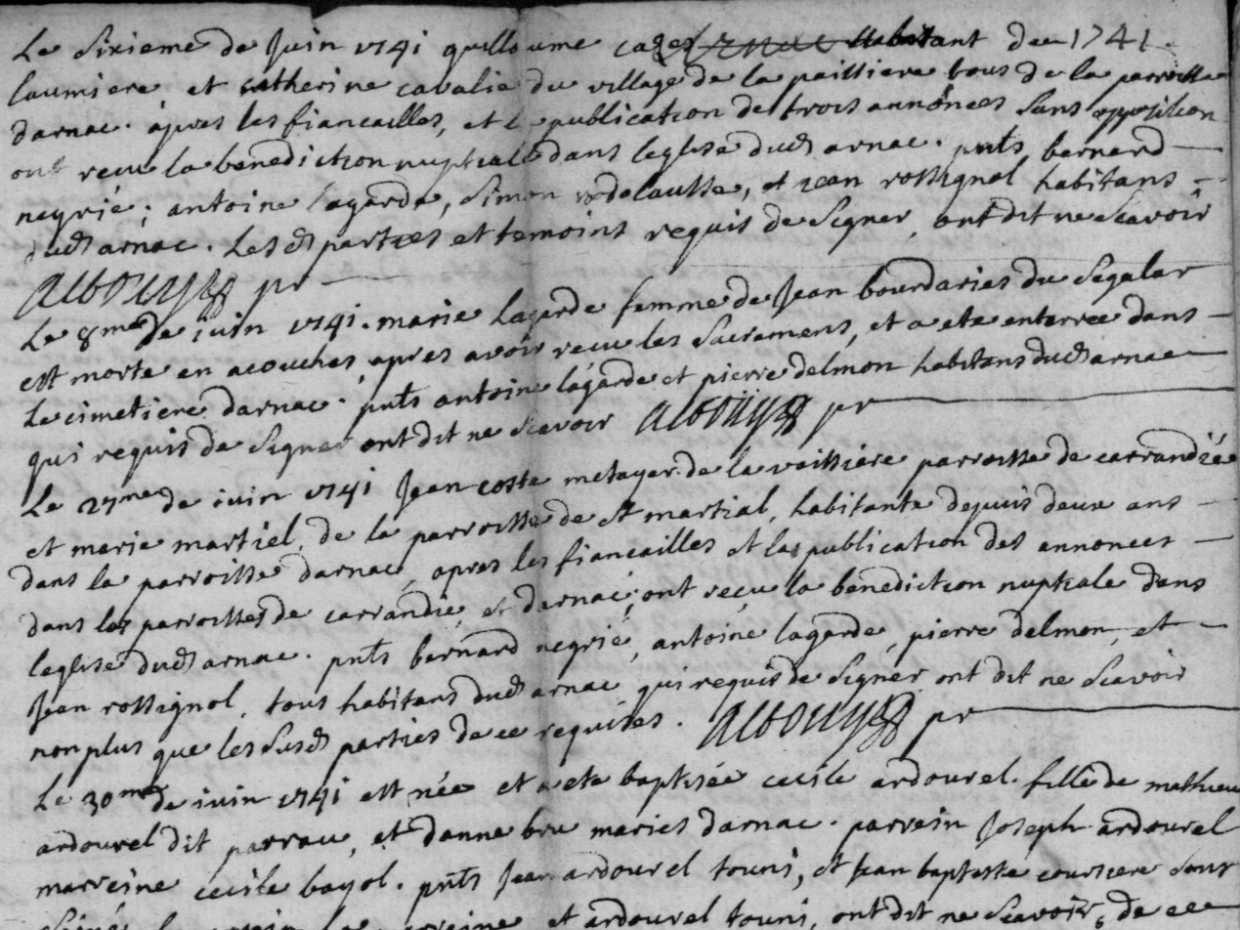 Le Sixieme de Juin 1741 guilloume cazes habitant de 1741.
laumiere et catherine cavalie du village de la paissiere tous de la parroisse
darnac. apres les fiancailles, et la publication des trois annonces sans opposition
ont recu la benediction nuptiale dans leglise dud arnac. pnts bernard
negrié; antoine lagarde, Simon delausse, et jean rossignol habitans
dud arnac. Lesd parties et temoins requis de signer, ont dit ne scavoir
Albouys pr
Le 8me de juin 1741. marie Lagarde femme de Jean bourdaries du segalar
est morte en acouches, apres avoir recu les Sacremens, et a ete enterree dans
Le cimetiere darnac. pnts antoine lagarde et pierre delmon habitans dud arnac
qui requis de signer ont dit ne scavoir Albouys pr
Le 27me de juin 1741 Jean coste metayer de la veissiere parroisse de carrandié
et marie martiel, de la parroisse de st martial, habitante depuis deux ans
dans la parroisse darnac, apres les fiancailles et las publication des annonces
dans las parroisses de carrandie, et darnac; ont reçu la benediction nuptiale dans
leglise dud arnac. pnts bernard negrié, antoine lagarde, pierre delmon, et
Jean rossignol, tous habitans dud arnac qui requis de signer ont dit ne scavoir
non plus que les susd parties de ce requises. Albouys pr
Le 30me de juin 1741 est née et a ete baptisée cecile ardourel. fille de mathieu
ardourel dit parrau, et danne bru maries darnac. parrein Joseph ardourel
marreine cecile bayol. pnts Jean ardourel touni, et Jean baptiste coursiere sous
signé marreine et ardourel touni, ont dit ne scavoir, de ce